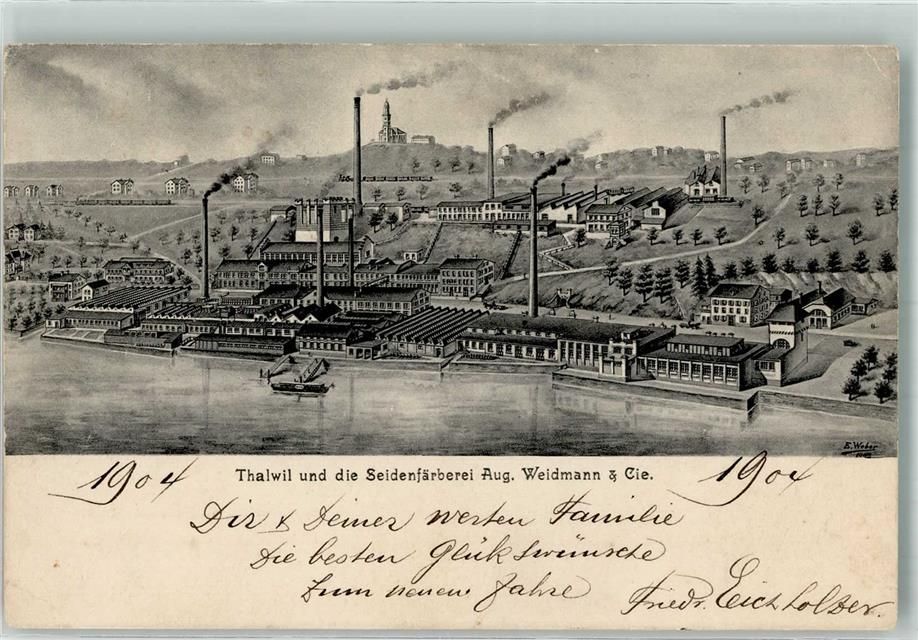 E. Weber
Thalwil und die Seidenfärberei Aug. Weidmann & Cie.
1904 1904
Dir & Deiner werten Familie
Die besten Glükswünsche
Zum neuen Jahre
Friedr. Eichholzer.